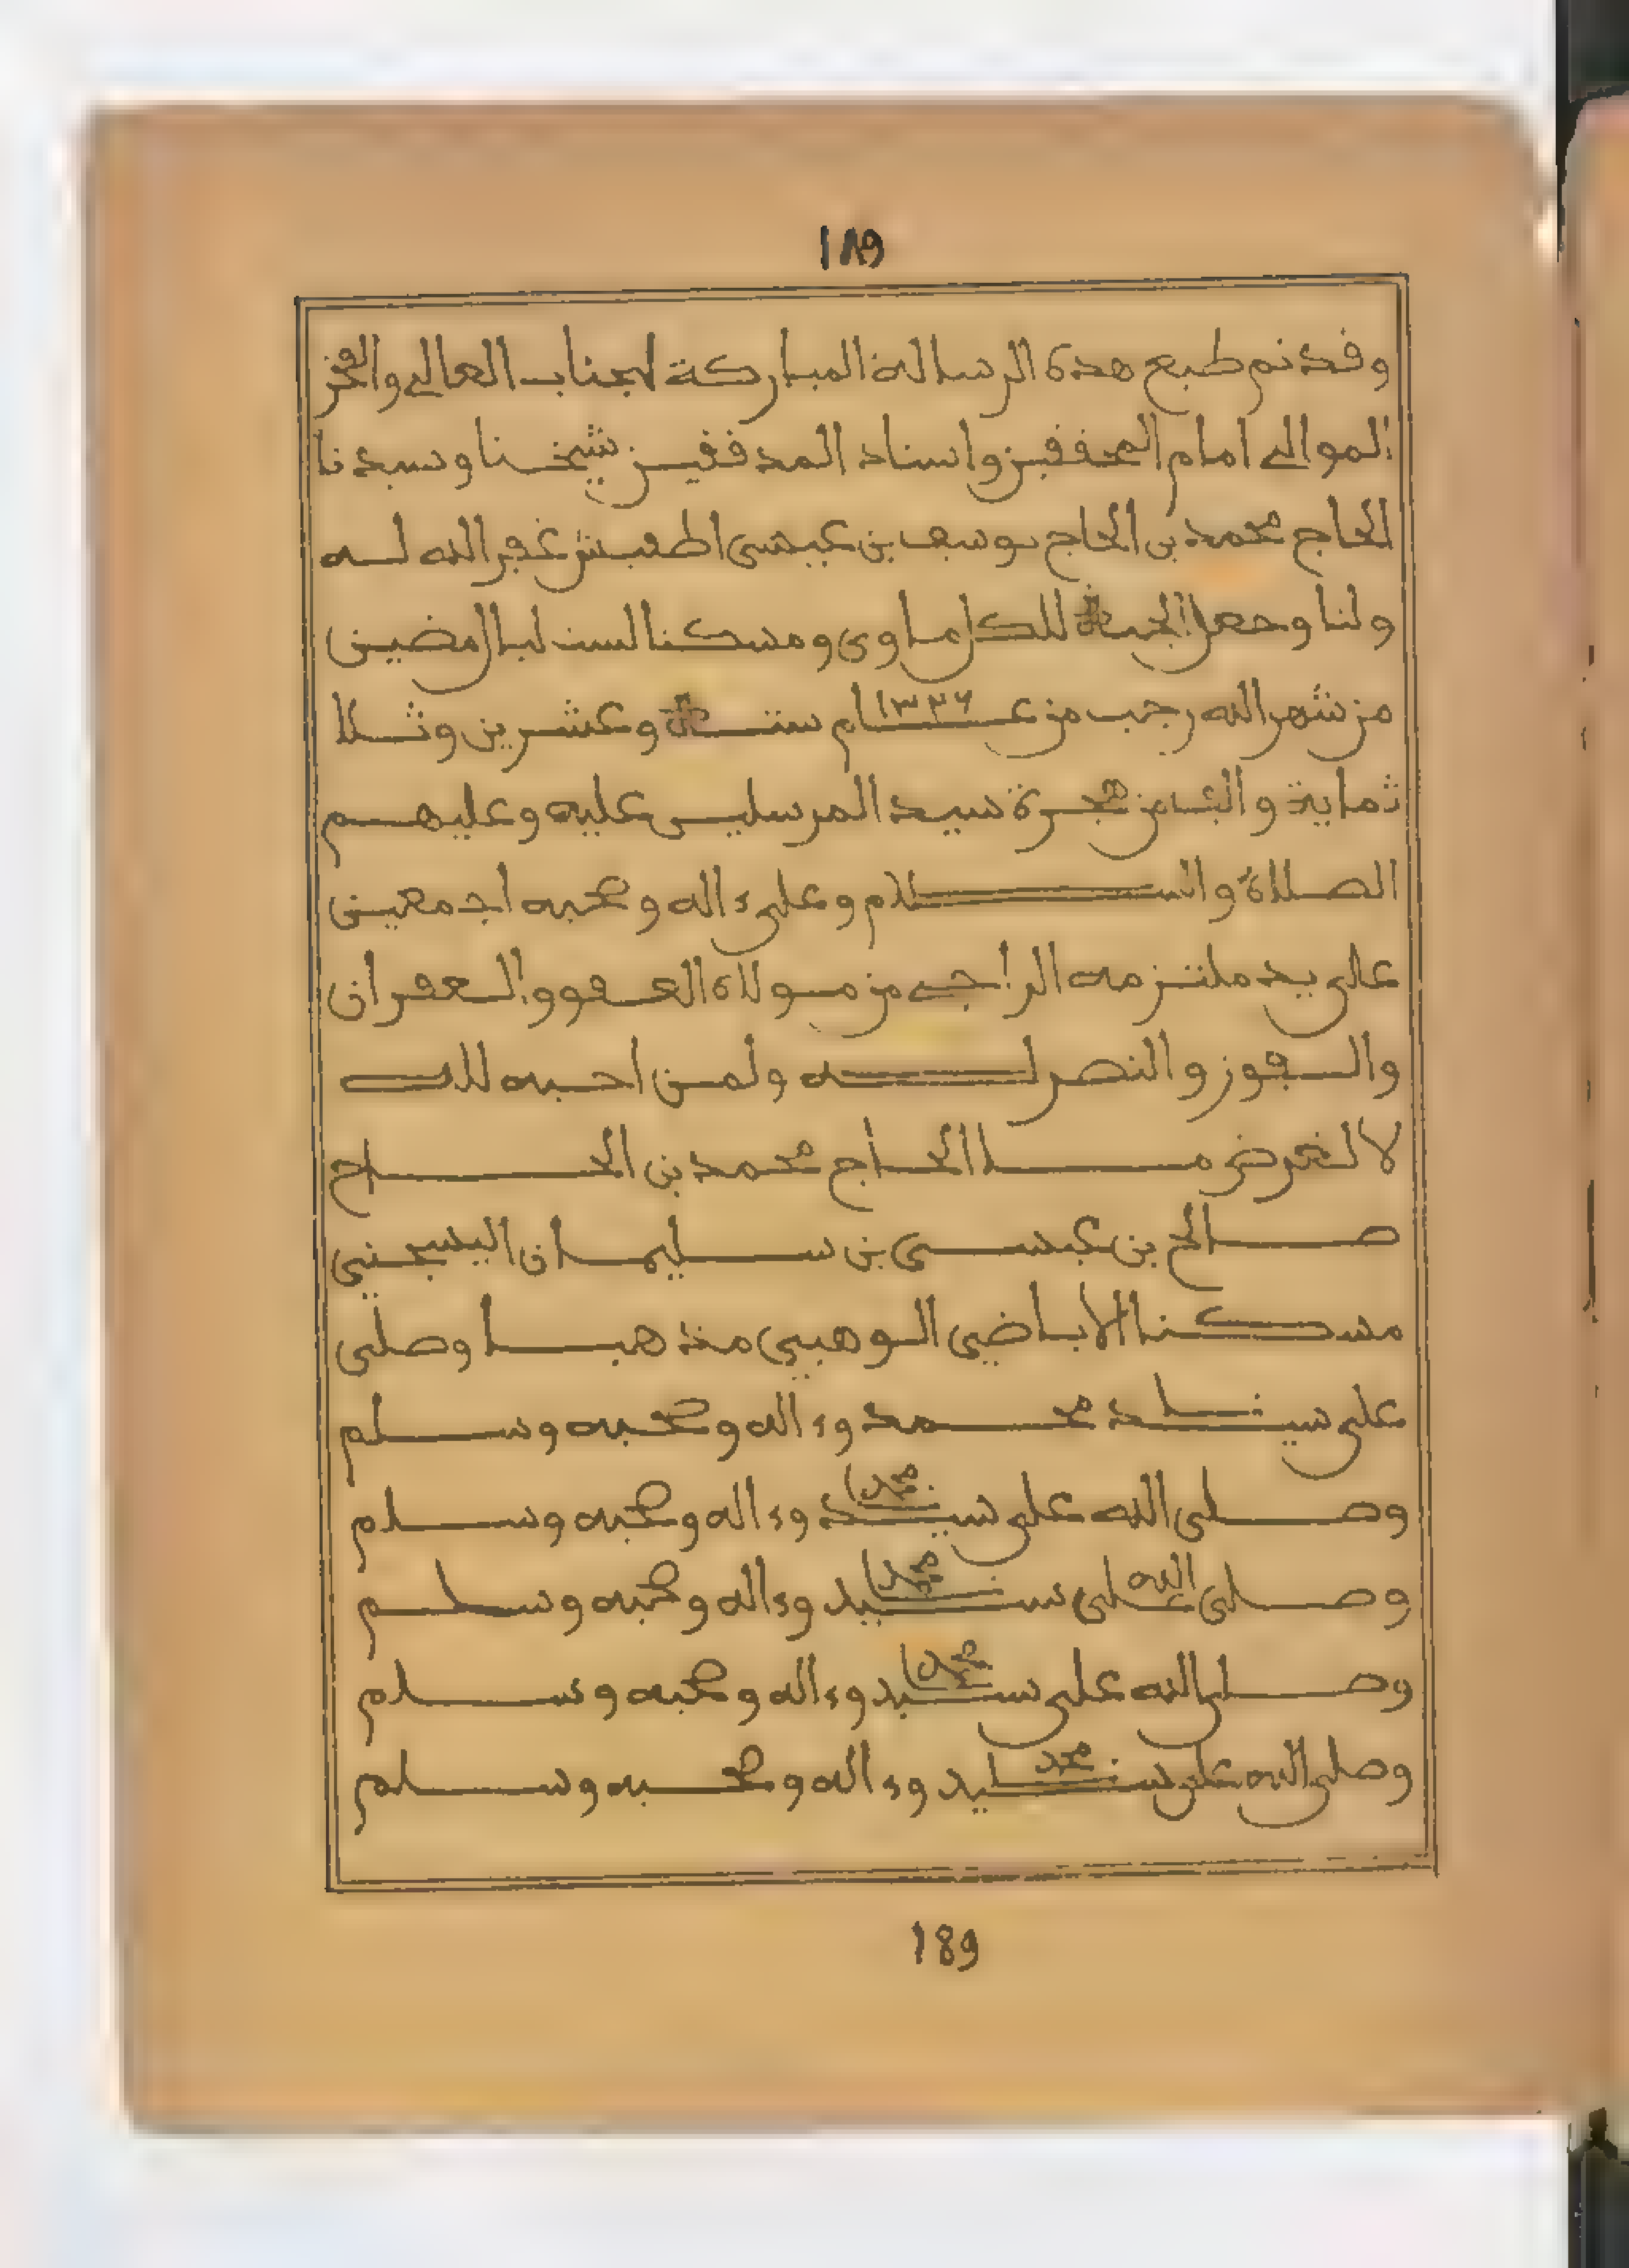 ١٨٩
وقد تم طبع هذه الرسالة المباركة لجناب العالي والفخر
الموالي امام المحققين واستاد المدققين شيخنا وسيدنا
الحاج محمد بن الحاج يوسف بن عيسى اطفيش غفر الله له
ولنا وجعل الجنة للكل ماوى ومسكنا لست ليال مضين
من شهر الله رجب من عام ١٣٢٦ ستة وعشرين وثلا
ثماية والف من هجرة سيد المرسلين عليه وعليهم
الصلاة والسلام وعلى ءاله وصحبه اجمعين
على يد ملتزمه الراجي من مولاه العفو والغفران
والفوز والنصر له ولمن احبه لله
لا لغرض ما الحاج محمد بن الحاج
صالح بن عيسى بن سليمان اليسجني
مسكنا الاباضي الوهبي مذهبا وصلى
على سيدنا محمد وءاله وصحبه وسلم
وصلى الله على سيدنا محمد وءاله وصحبه وسلم
وصلى الله على سيدنا محمد وءاله وصحبه وسلم
وصلى الله على سيدنا محمد وءاله وصحبه وسلم
وصلى الله على سيدنا محمد وءاله وصحبه وسلم
189